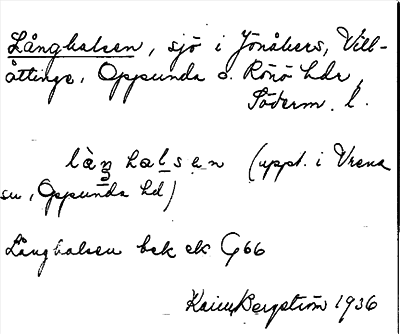 Långhalsen, sjö i Jönåkers, Vill-
åttinge, Oppunda o. Rönö hdr,
Söderm. l.
làŋhalsen (uppt. i Vrena
sn, Oppunda hd)
Långhalsen bek ek G66
Karin Bergström 1936